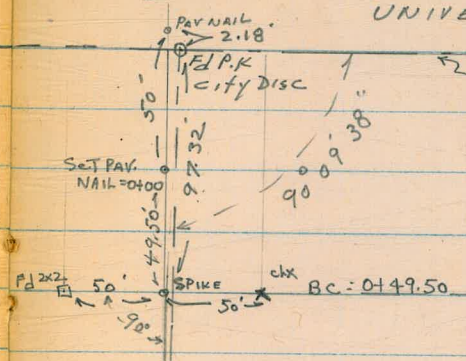 UNIVE
PAV NAIL
2.18'
Fd P.K
City Disc
50'
97.32'
90° 09' 38"
Set PAV.
NAIL = 0+00
49.50'
Fd 2x2
50'
SPIKE
chx
BC = 0+49.50
50'
90°